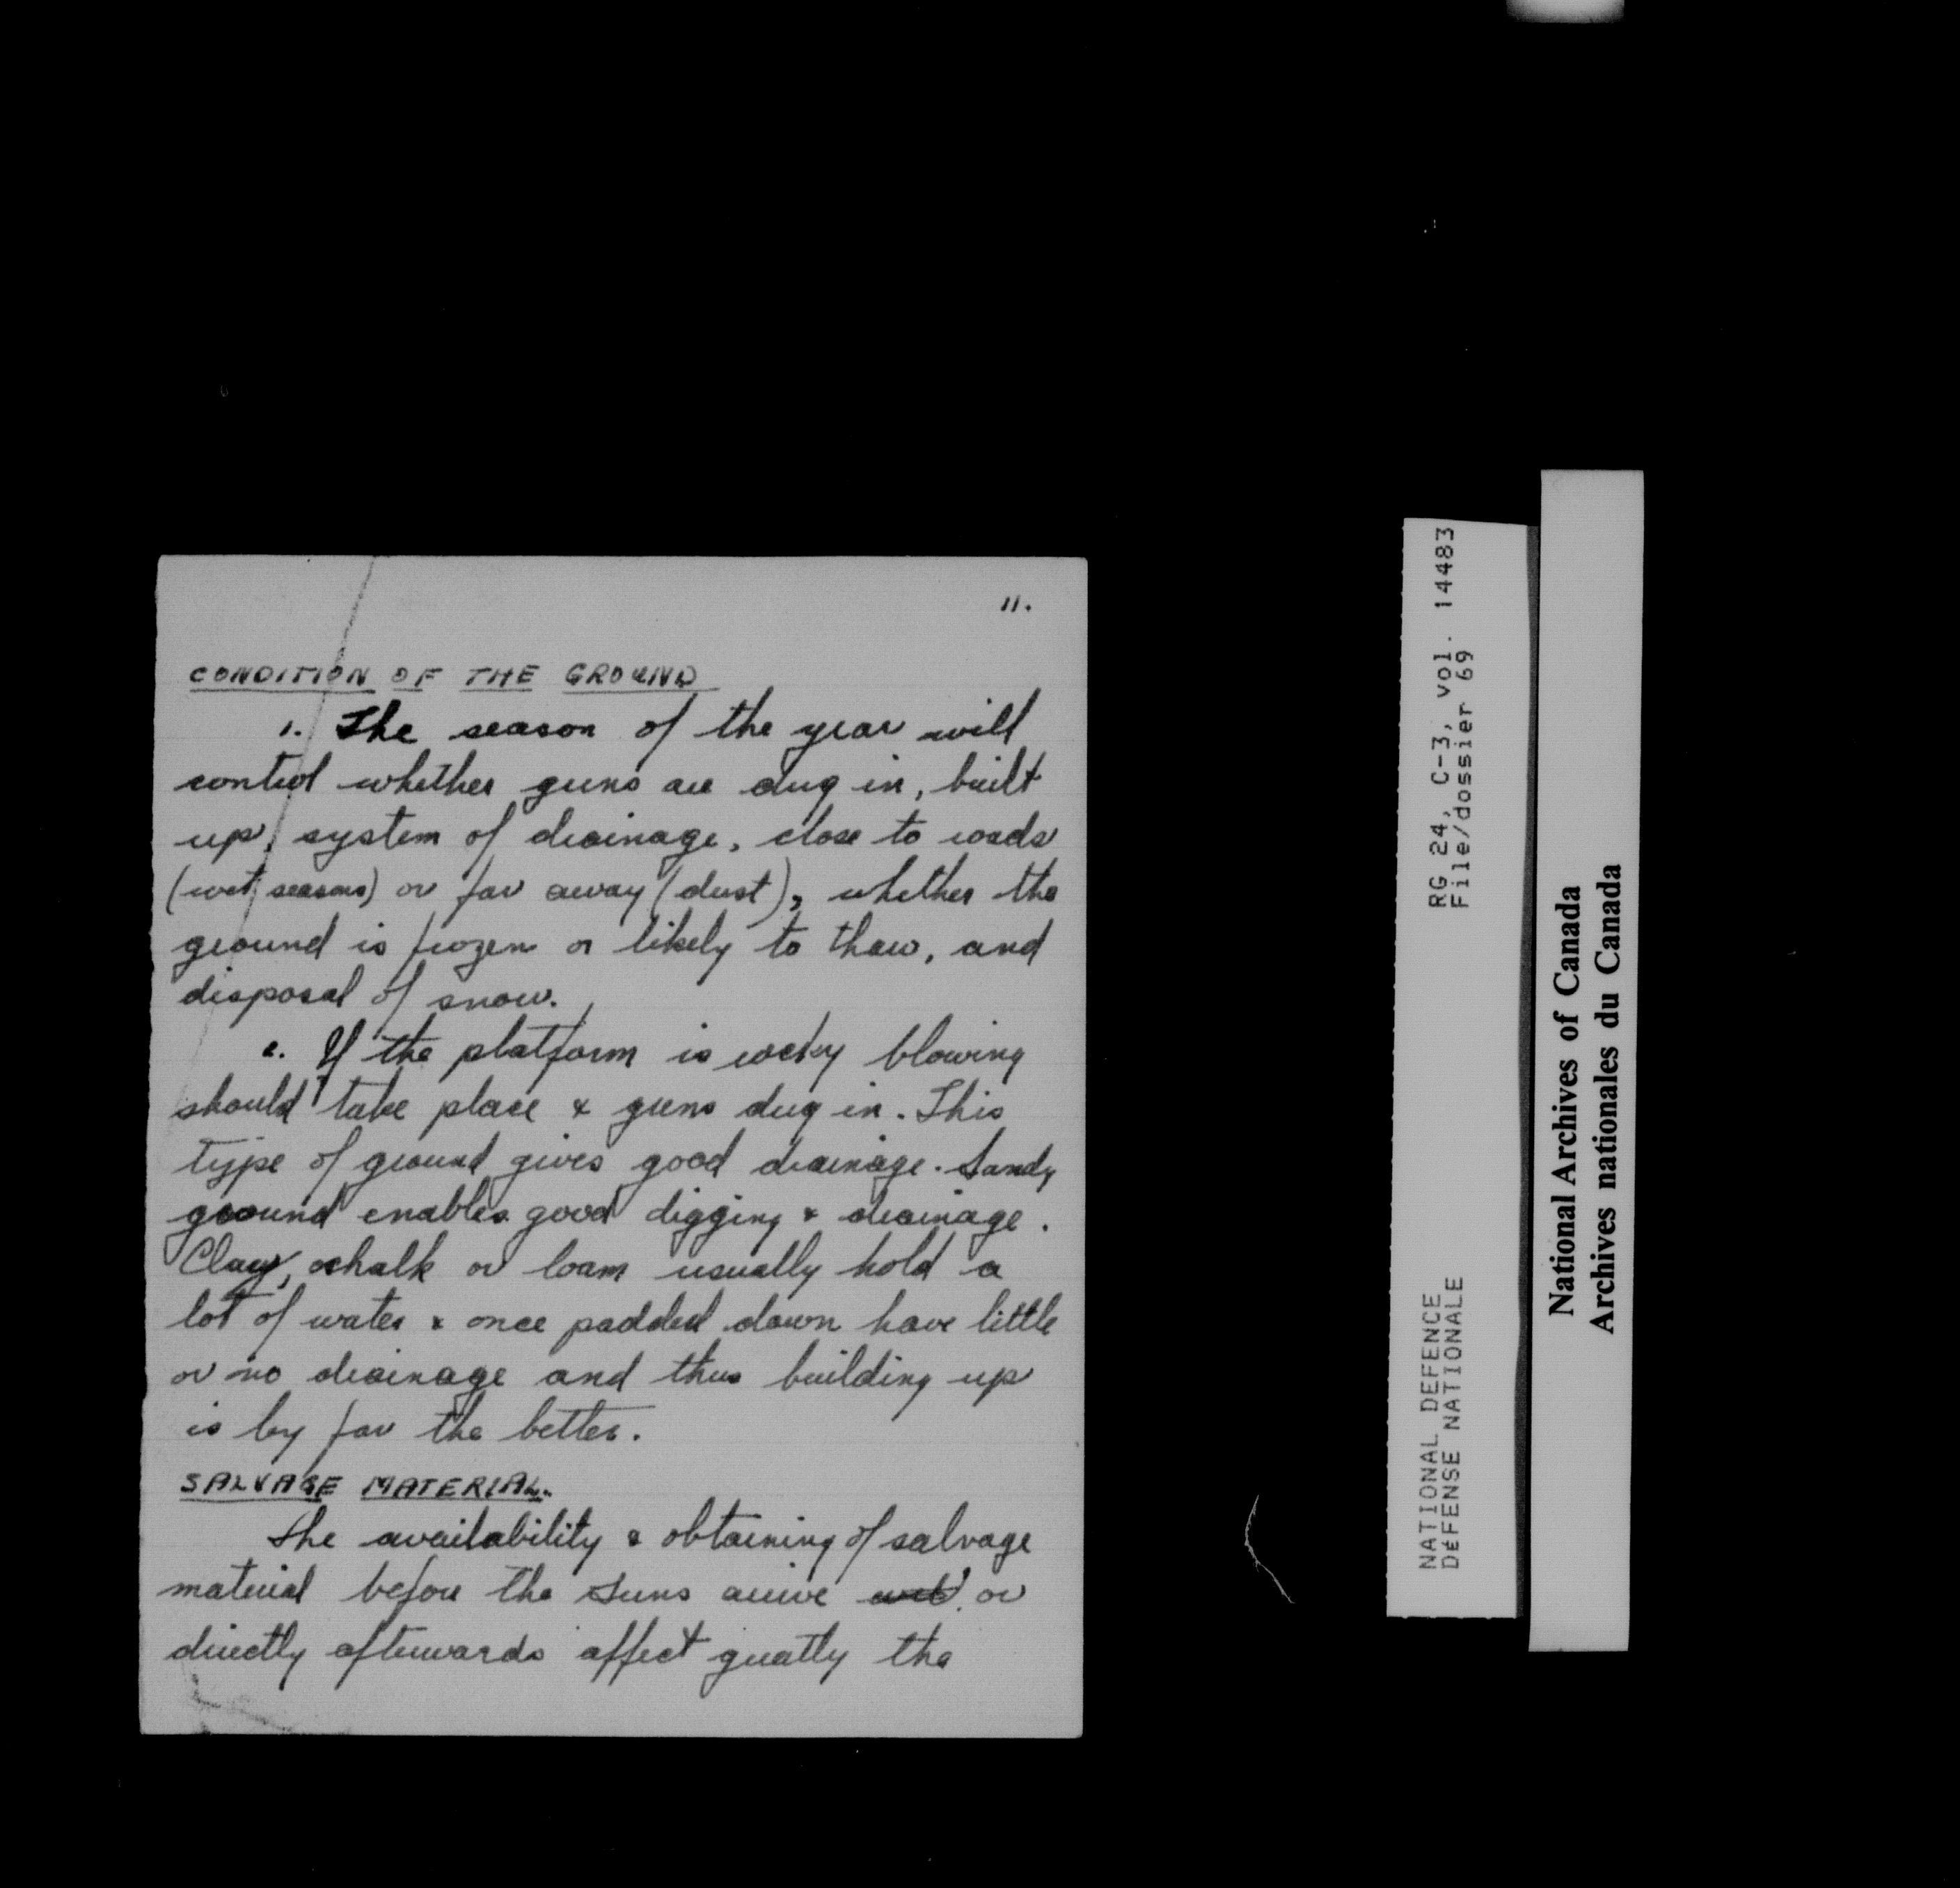 11.
CONDITION OF THE GROUND
1. The season of the year will
control whether guns are dug in, built
up, system of drainage, close to roads
(wet seasons) or far away (dust), whether the
ground is frozen or likely to thaw, and
disposal of snow.
2. If the platform is rocky blowing
should take place & guns dug in. This
type of ground gives good drainage. Sandy
ground enables good digging & drainage.
Clay, chalk or loam usually hold a
lot of water & once padded down have little
or no drainage and thus building up
is by far the better.
SALVAGE MATERIAL.
The availability & obtaining of salvage
material before the guns arrive or
directly afterwards affect greatly the
RG 24, C-3, vol. 14483
File/dossier 69
NATIONAL DEFENCE
DÉFENSE NATIONALE
National Archives of Canada
Archives nationales du Canada